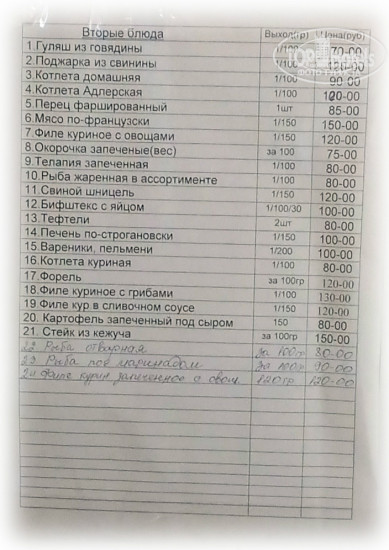 Вторые блюда Выход(гр) Цена(руб)
1.Гуляш из говядины 1/100 70-00
2.Поджарка из свинины 1/100 120-00
3.Котлета домашняя 1/100 90-00
4.Котлета Адлерская 1/100 100-00
5.Перец фаршированный 1шт 85-00
6.Мясо по-французски 1/150 150-00
7.Филе куриное с овощами 1/150 120-00
8.Окорочка запеченые(вес) за 100 75-00
9.Телапия запеченная 1/100 80-00
10.Рыба жаренная в ассортименте 1/100 80-00
11.Свиной шницель 1/150 120-00
12.Бифштекс с яйцом 1/100/30 100-00
13.Тефтели 2шт 80-00
14.Печень по-строгановски 1/150 100-00
15.Вареники, пельмени 1/200 100-00
16.Котлета куриная 1/100 80-00
17.Форель за 100гр 120-00
18.Филе куриное с грибами 1/100 130-00
19.Филе кур в сливочном соусе 1/150 120-00
20. Картофель запеченный под сыром 150 80-00
21. Стейк из кежуча за 100гр 150-00
22 Рыба отварная за 100гр 80-00
23 Рыба под маринадом за 100гр 90-00
24 Филе курин запеченное с овощ 120гр 120-00